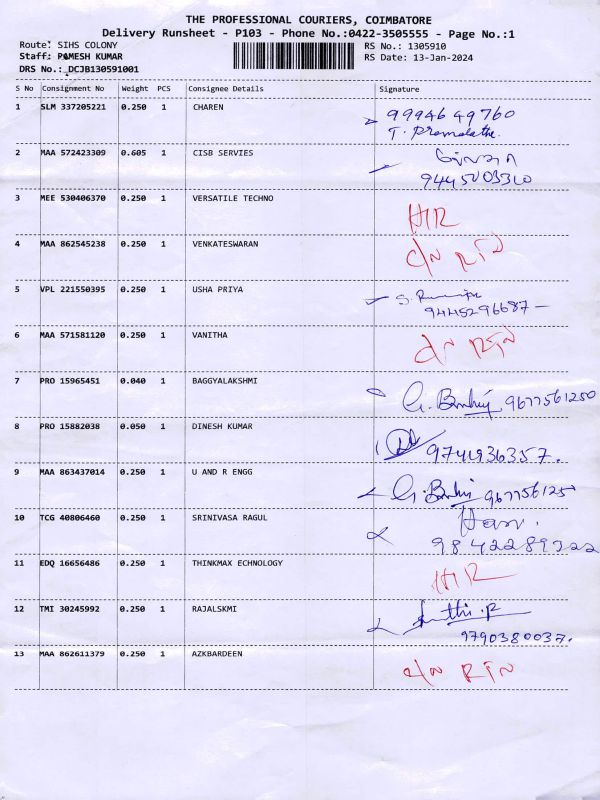 THE PROFESSIONAL COURIERS, COIMBATORE
Delivery Runsheet - P103 - Phone No.:0422-3505555 - Page No.:1
Route: SIHS COLONY RS No.: 1305910
Staff: RAMESH KUMAR RS Date: 13-Jan-2024
DRS No.: DCJB130591001
S No Consignment No Weight PCS Consignee Details Signature
1 SLM 337205221 0.250 1 CHAREN 9994649760
T. Premalatha
2 MAA 572423309 0.605 1 CISB SERVIES
9445003310
3 MEE 530406370 0.250 1 VERSATILE TECHNO HIR
4 MAA 862545238 0.250 1 VENKATESWARAN C/N RTN
5 VPL 221550395 0.250 1 USHA PRIYA
9445296687
6 MAA 571581120 0.250 1 VANITHA C/N RTN
7 PRO 15965451 0.040 1 BAGGYALAKSHMI 9677561250
8 PRO 15882038 0.050 1 DINESH KUMAR 9741936357.
9 MAA 863437014 0.250 1 U AND R ENGG 967756125
10 TCG 40806460 0.250 1 SRINIVASA RAGUL
9842289322
11 EDQ 16656486 0.250 1 THINKMAX ECHNOLOGY HIR
12 TMI 30245992 0.250 1 RAJALSKMI
9790380037.
13 MAA 862611379 0.250 1 AZKBARDEEN C/N RTN